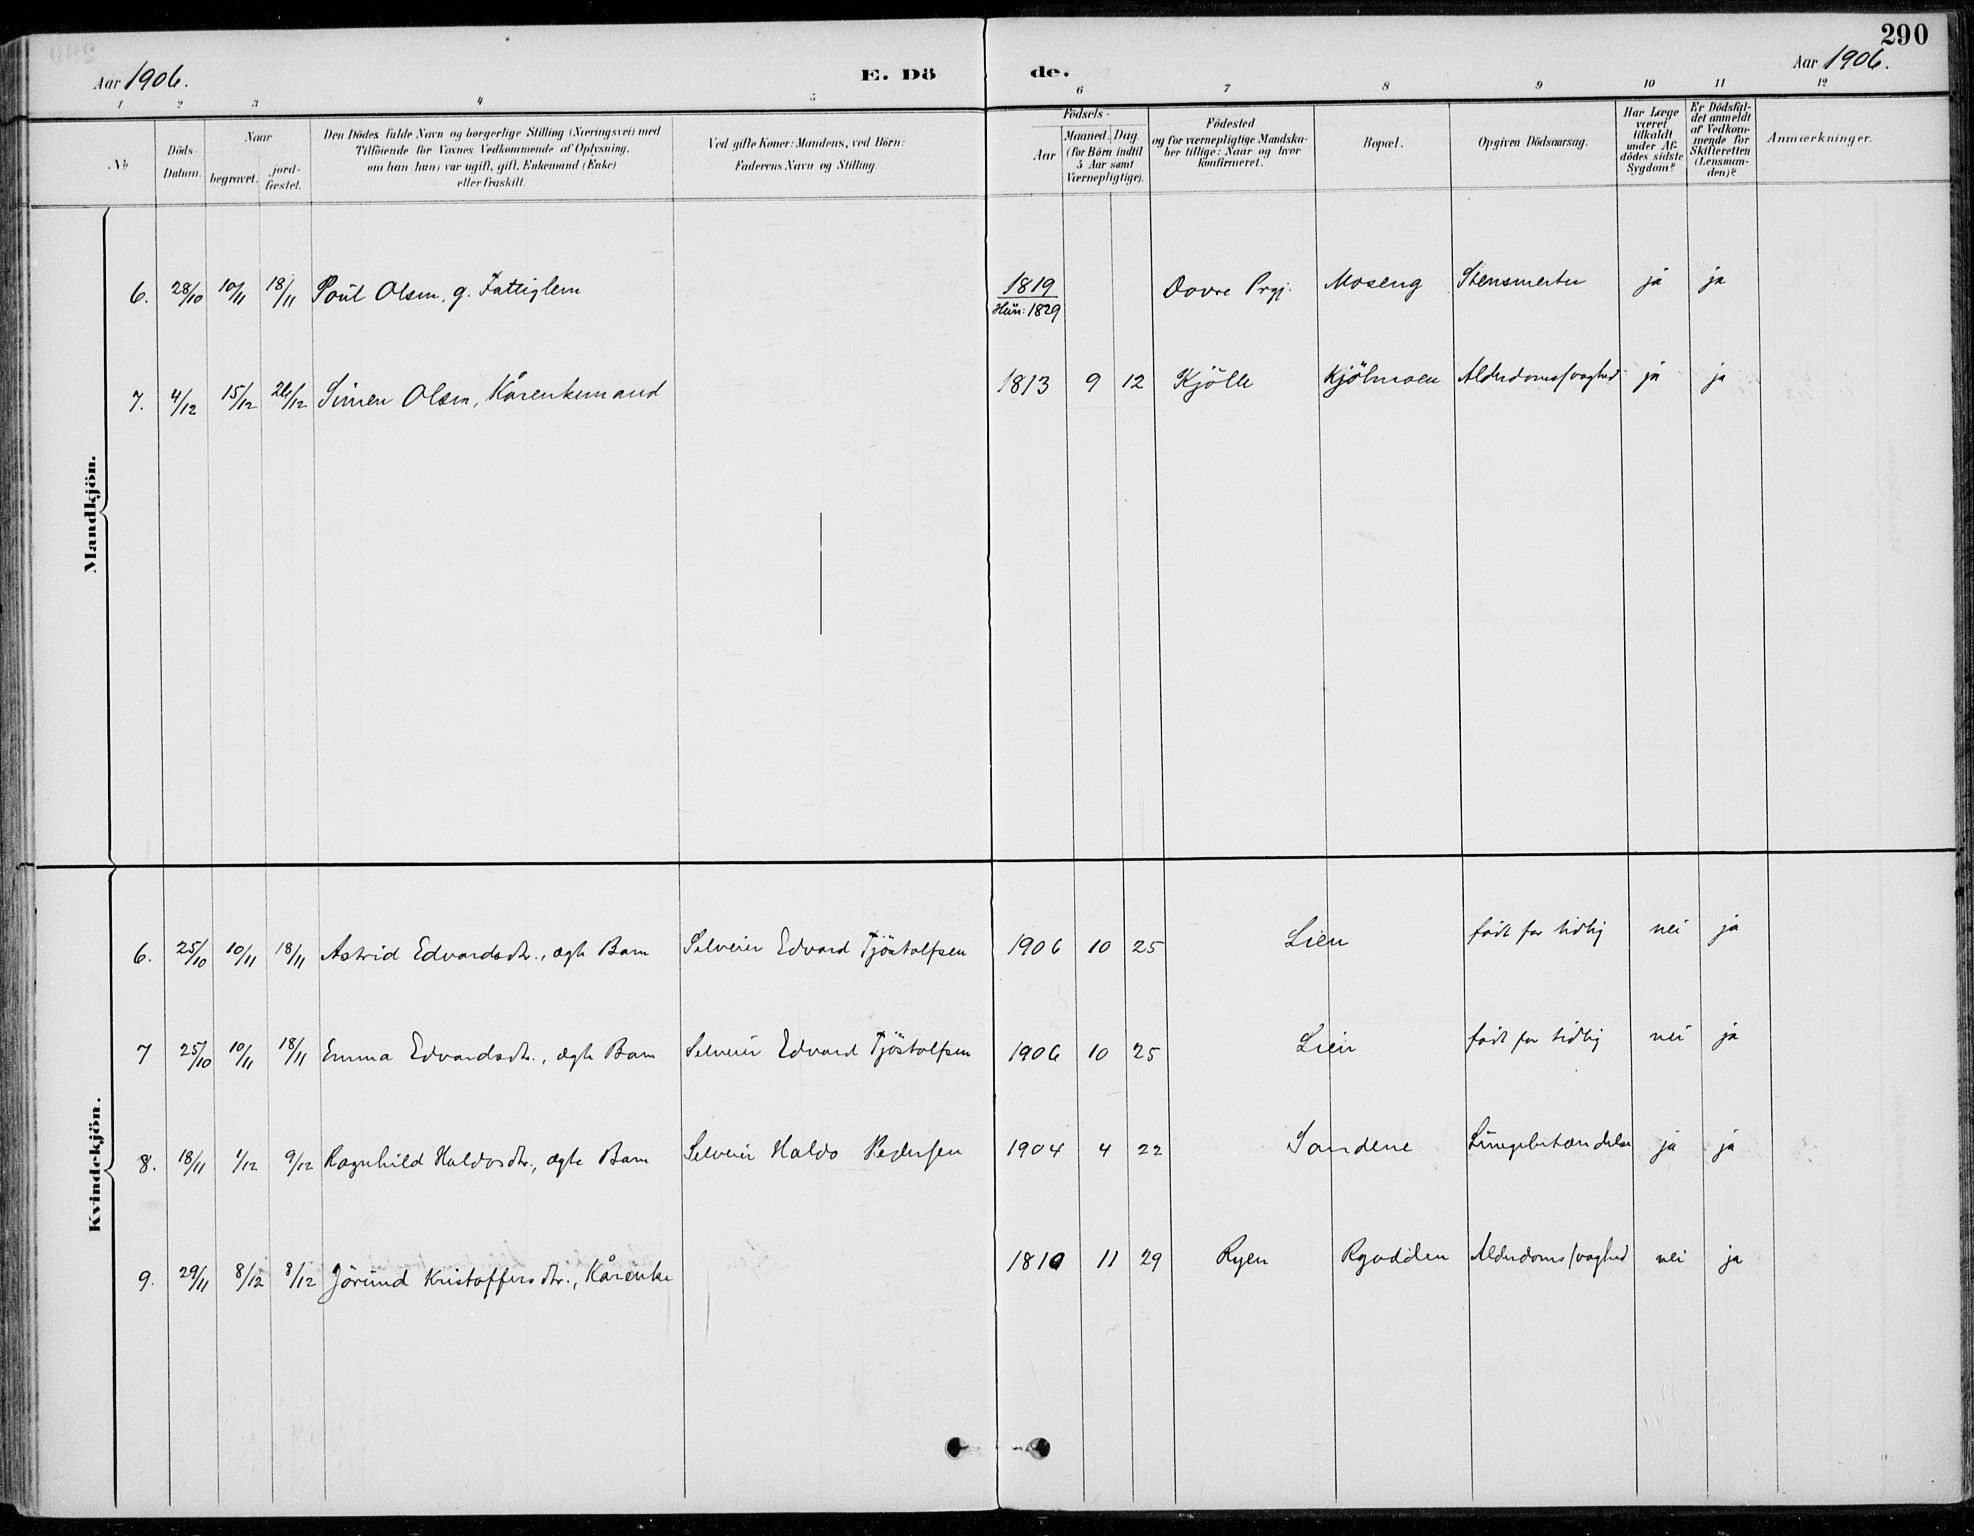 290
Aar 1906.
E. Dö
de.
Aar 1906.
1 2 3 4 5 6 7 8 9 10 11 12
No
Döds-
Datum.
Naar
begravet.
jord-
fæstet.
Den Dödes fulde Navn og borgerlige Stilling (Næringsvei) med
Tilföiende for Voxnes Vedkommende af Oplysning,
om han (hun) var ugift, gift, Enkemand (Enke)
eller fraskilt.
Ved gifte Koner: Mandens, ved Börn:
Faderens Navn og Stilling.
Födsels-
Aar
Maaned. Dag.
(for Börn indtil
5 Aar samt
Værnepligtige).
Födested
og for værnepligtige Mandska-
ber tillige: Naar og hvor
konfirmeret.
Bopæl.
Opgiven Dödsaarsag.
Har Læge
været
tilkaldt
under Af-
dödes sidste
Sygdom?
Er Dödsfal-
det anmeldt
af Vedkom-
mende for
Skifteretten
(Lensman-
den)?
Anmærkninger.
Mandkjön.
6. 28/10 10/11 18/11 Poul Olsen, g. Fattiglem 1819 Dovre Prgj. Moseng Stensmerter ja ja
Hun: 1829
7. 4/12 15/12 26/12 Simen Olsen, Kårenkemand 1813 9 12 Kjölle Kjölmoen Alderdomssvaghed ja ja
Kvindekjön.
6. 25/10 10/11 18/11 Astrid Edvardsdtr., ægte Barn Selveier Edvard Tjöstolfsen 1906 10 25 Lien født for tidlig nei ja
7 25/10 10/11 18/11 Emma Edvardsdtr., ægte Barn Selveier Edvard Tjöstolfsen 1906 10 25 Lien født for tidlig nei ja
8. 18/11 1/12 9/12 Ragnhild Haldosdtr., ægte Barn Selveier Haldo Pedersen 1904 4 22 Sandene Lungebetændelse ja ja
9. 29/11 8/12 8/12 Jörund Kristoffersdtr., Kårenke 1810 11 29 Ryen Rgodden Alderdomssvaghed nei ja